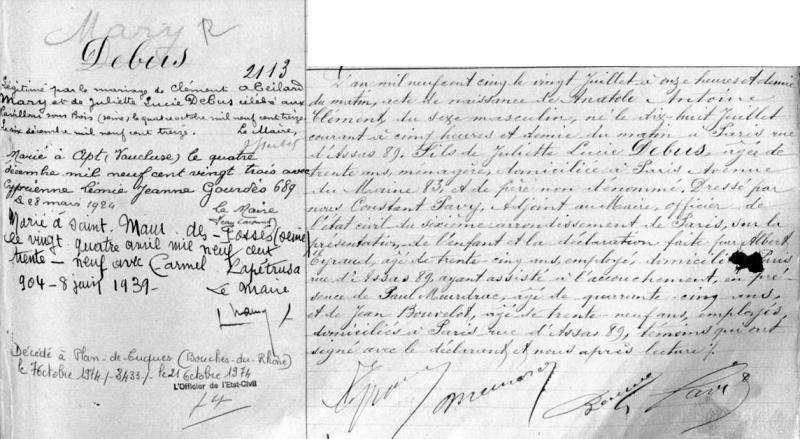 Mary R
Debus
2113
Légitimé par le mariage de Clément Abeilard
Mary et de Juliette Lucie Debus célébré aux
Pavillons sous Bois (Seine) le quatre octobre mil neuf cent treize.
Le six décembre mil neuf cent treize. Le Maire,
Marié à Apt (Vaucluse) le quatre
décembre mil neuf cent vingt trois avec
Cyprienne Noémie Jeanne Gourdès 689
Le 28 mars 1924
le Maire
Marié à Saint. Maur des-Fossés (Seine)
le vingt quatre avril mil neuf cent
trente-neuf avec Carmel Lapétrusa
904-8 juin 1939-
Le Maire
Décédé à Plan-de-Cuques (Bouches-du-Rhône)
le 7 octobre 1974/-3433/- le 21 octobre 1974
L'Officier de l'Etat-Civil
L'an mil neuf cent cinq le vingt Juillet à onze heures et demie
du matin, acte de naissance de Anatole Antoine
Clément, du sexe masculin, né le dix-huit Juillet
courant à cinq heures et demie du matin à Paris rue
d'Assas 89. Fils de Juliette Lucie Debus, âgée de
trente ans, ménagère, domiciliée à Paris Avenue
du Maine 83. et de père non dénommé. Dressé par
nous Constant Favy, Adjoint au Maire, officier de
l'état civil du sixième arrondissement de Paris, sur la
présentation de l'enfant et la déclaration faite par Albert
Eyraud, âgé de trente-cinq ans, employé, domicilié Paris
rue d'Assas 89, ayant assisté à l'accouchement, en pré-
sence de Paul Meurdrac, âgé de quarante-cinq ans,
et de Jean Bouvelot, âgé de trente-neuf ans, employés,
domiciliés à Paris rue d'Assas 89, témoins qui ont
signé avec le déclarant et nous après lecture /.